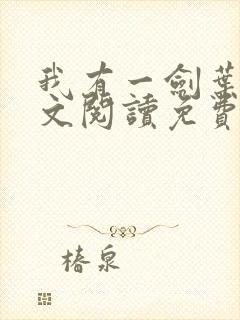 我有一劍葉
文閱讀免費
椿泉